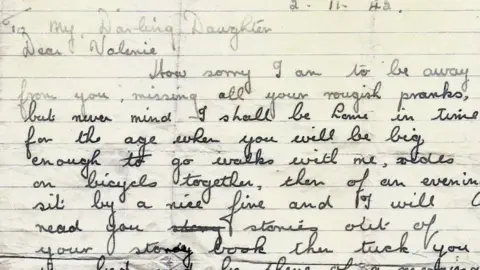 2-11-42.
To My Darling Daughter
Dear Valerie
How sorry I am to be away
from you, missing all your rougish pranks,
but never mind - I shall be home in time
for the age when you will be big
enough to go walks with me, rides
on bicycles together, then of an evening
sit by a nice fire and I will
read you stories out of
your story book then tuck you